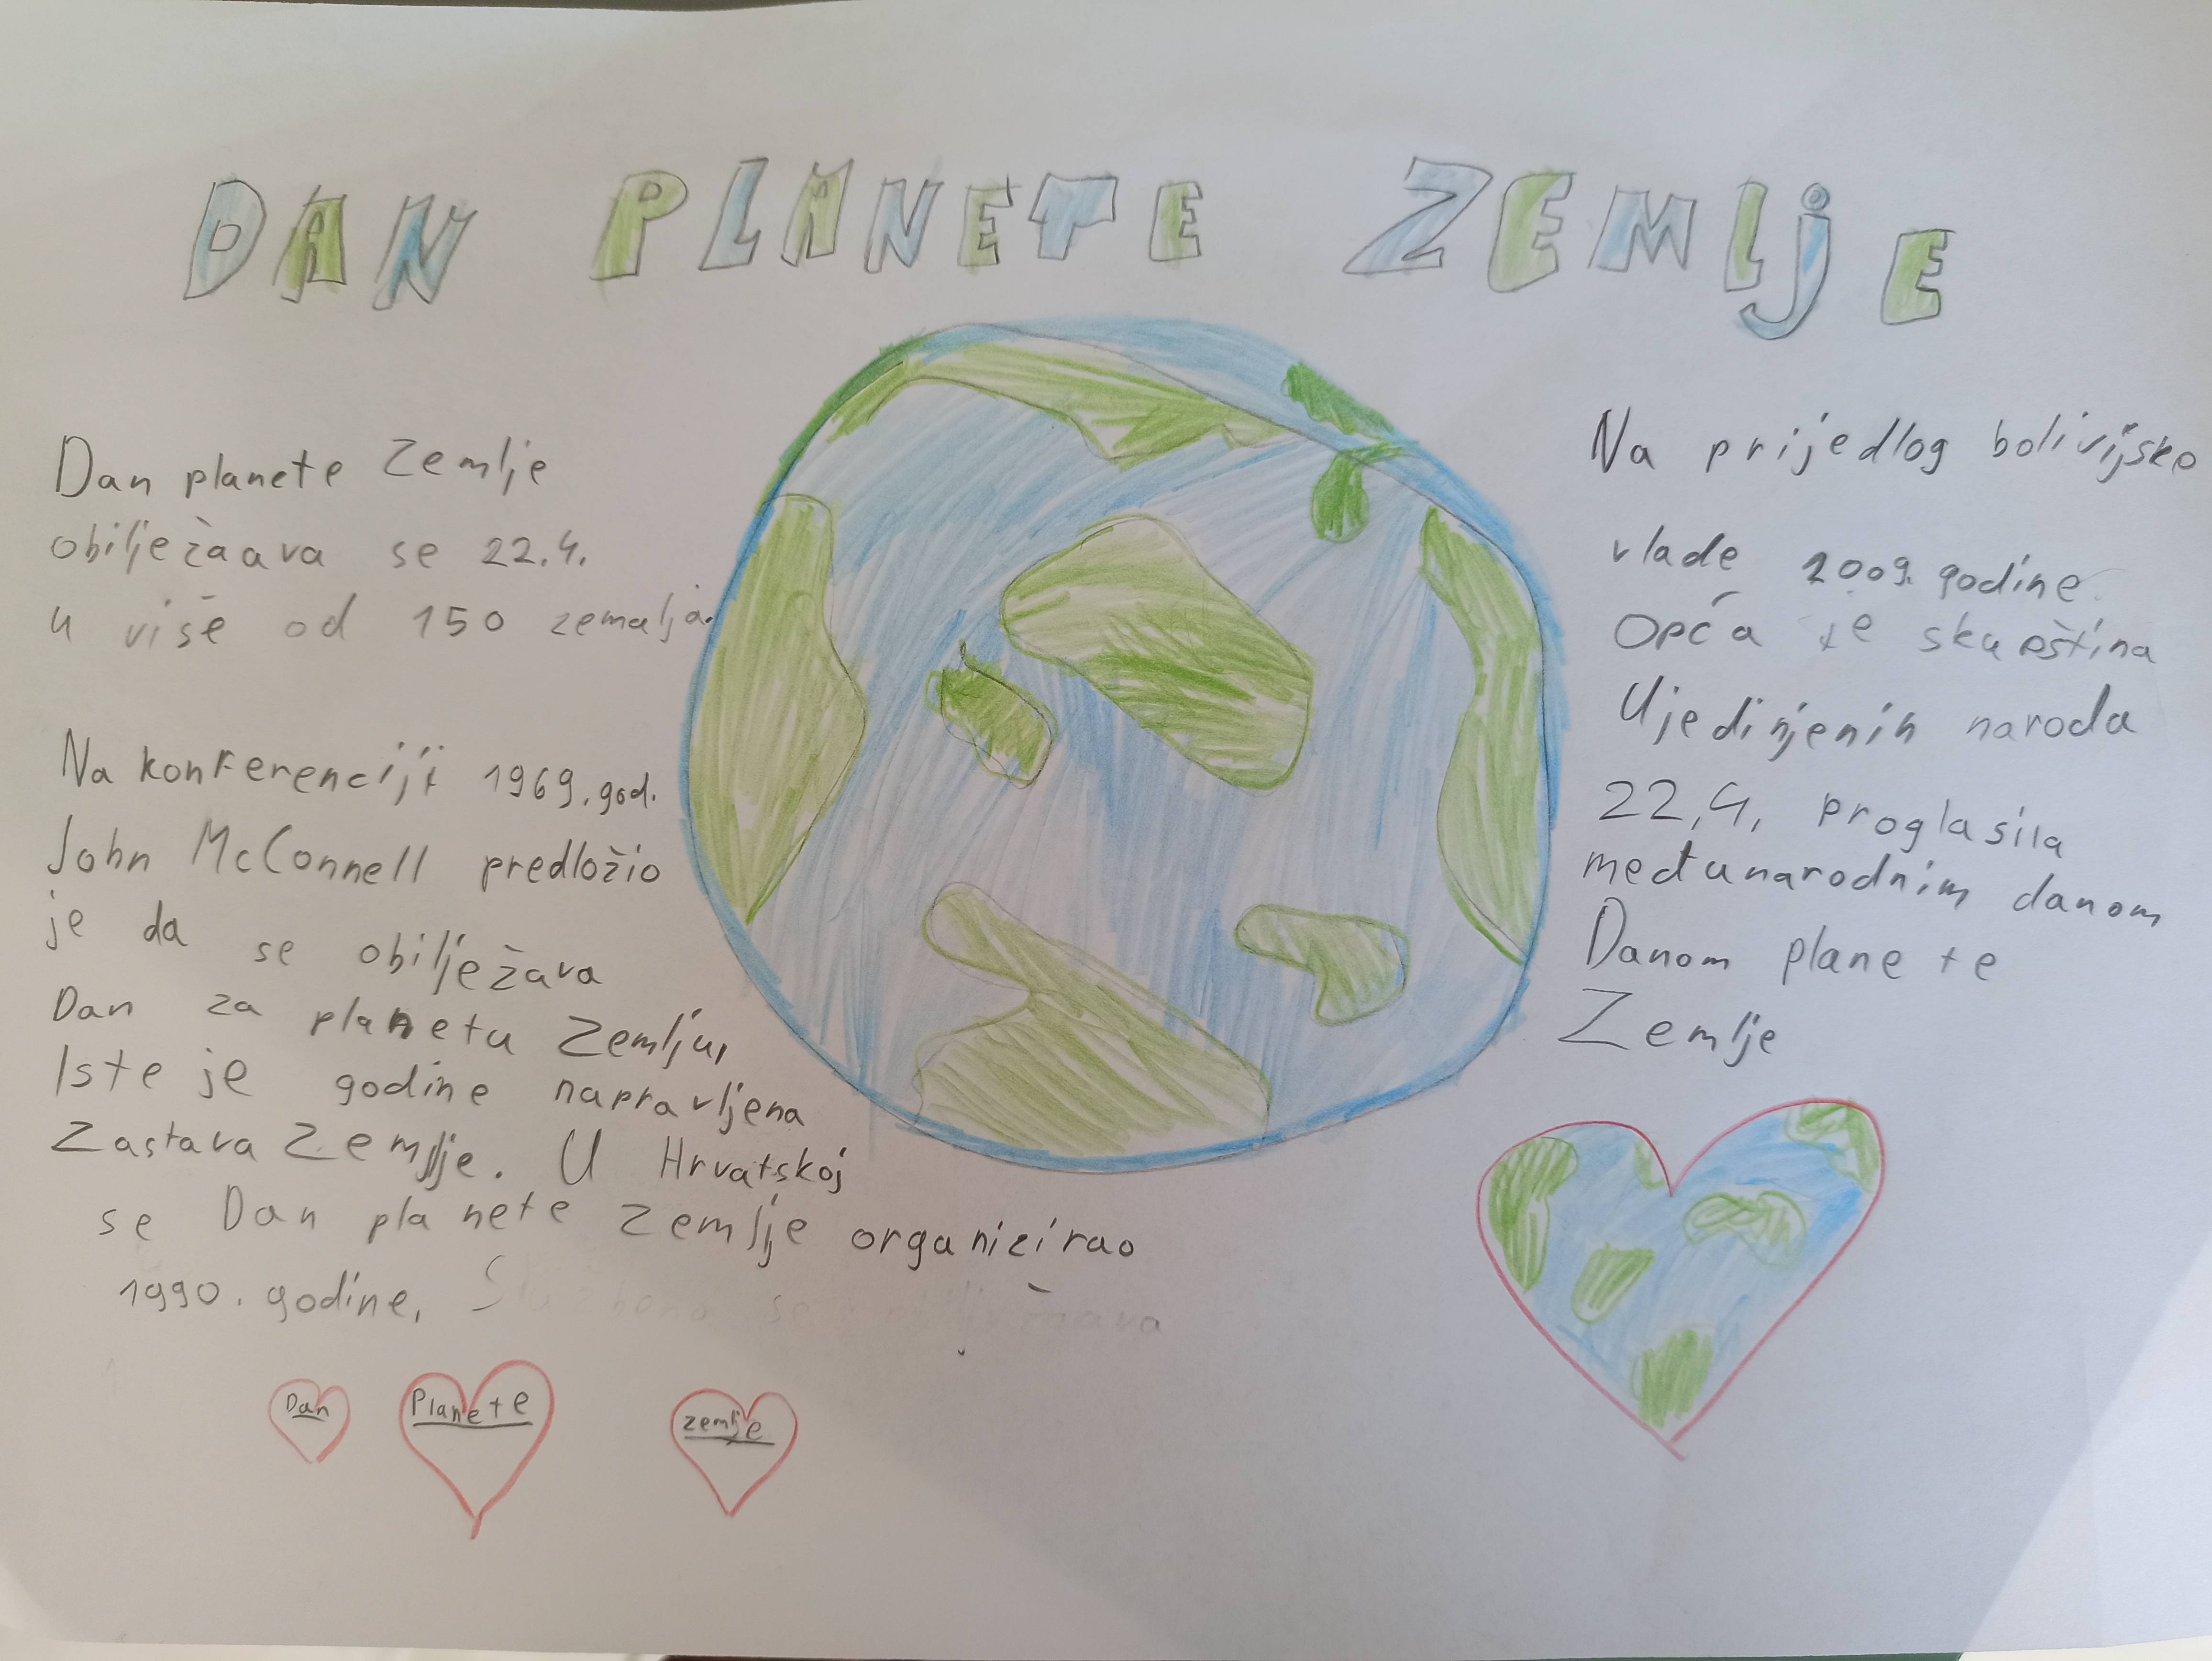 DAN PLANETE ZEMLjE
Dan planete Zemlje
obilježaava se 22.4.
u više od 150 zemalja.
Na konferenciji 1969. god.
John McConnell predložio
je da se obilježava
Dan za planetu Zemlju,
Iste je godine napravljena
Zastava Zemlje. U Hrvatskoj
se Dan planete Zemlje organizirao
1990. godine,
Na prijedlog bolivijske
vlade 2009. godine
Opća je skupština
Ujedinjenih naroda
22,4, proglasila
međunarodnim danom
Danom planete
Zemlje
Dan
Planete
zemlje